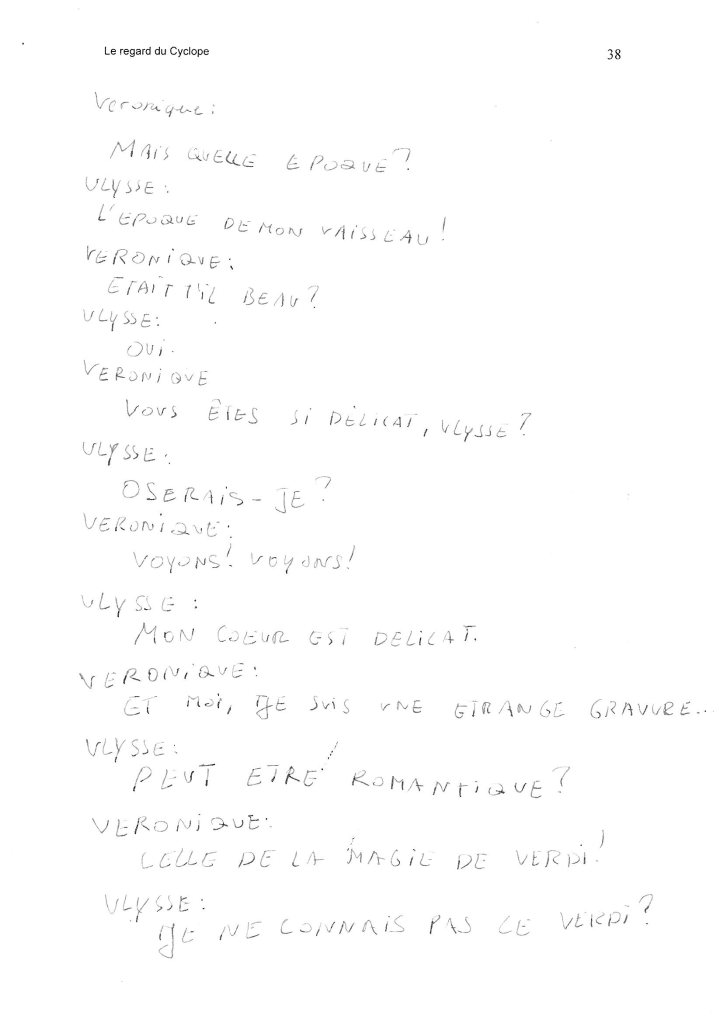 Le regard du Cyclope
38
Veronique:
MAIS QUELLE EPOQUE?
ULYSSE:
L'EPOQUE DE MON VAISSEAU!
VERONIQUE:
ETAIT T'IL BEAU?
ULYSSE:
OUI.
VERONIQUE
VOUS ÊTES SI DÉLICAT, ULYSSE?
ULYSSE:
OSERAIS-JE?
VERONIQUE:
VOYONS! VOYONS!
ULYSSE:
MON COEUR EST DELICAT.
VERONIQUE:
ET MOI, JE SUIS UNE ETRANGE GRAVURE...
ULYSSE:
PEUT ETRE ROMANTIQUE?
VERONIQUE:
CELLE DE LA MAGIE DE VERDI!
ULYSSE:
JE NE CONNAIS PAS CE VERDI?